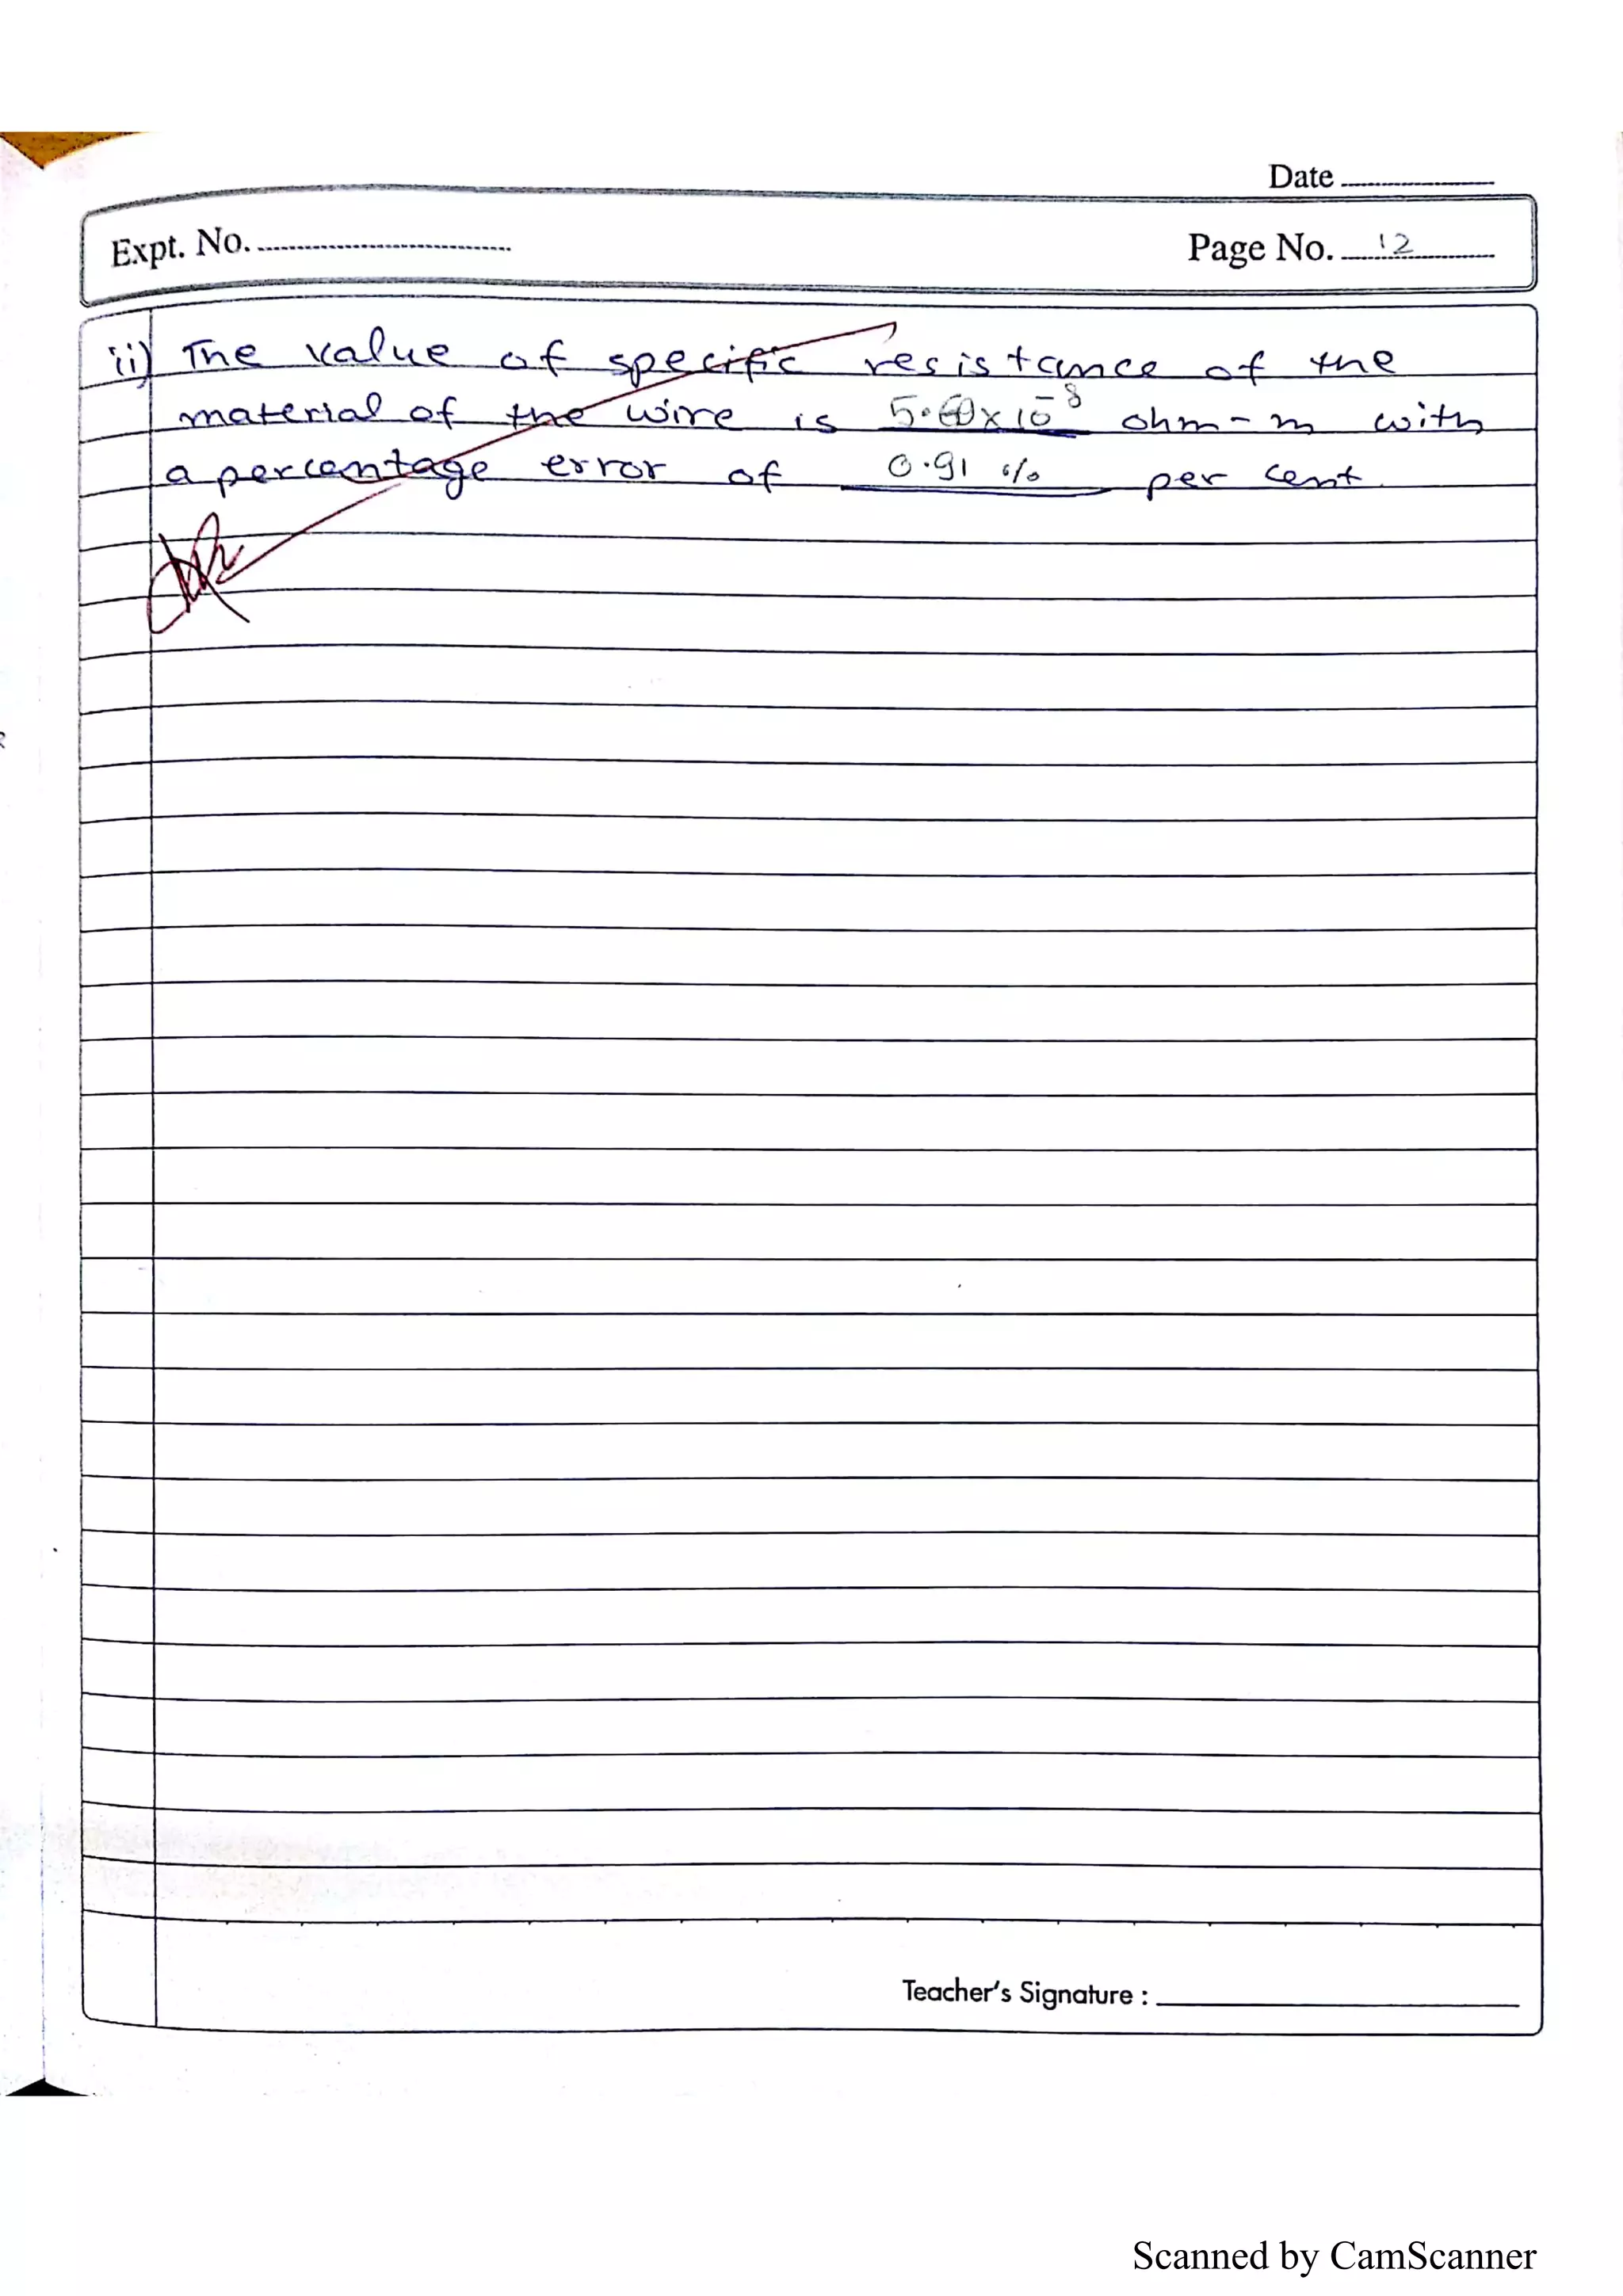 Date
Expt. No.
Page No. 12
ii) The value of specific resistance of the
material of the wire is 5.60 x 10⁻⁸ ohm - m with
a percentage error of 0.91 % per cent.
Teacher's Signature :
Scanned by CamScanner